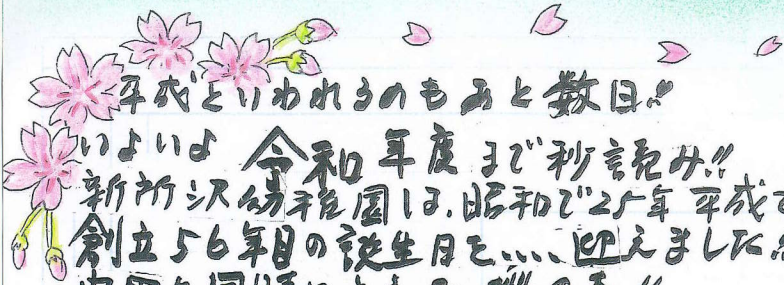 平成といわれるのもあと数日!!
いよいよ 令和 年度 まで秒読み!!
新所沢幼稚園は、昭和で25年 平成
創立56年目の誕生日を、、、、迎えました